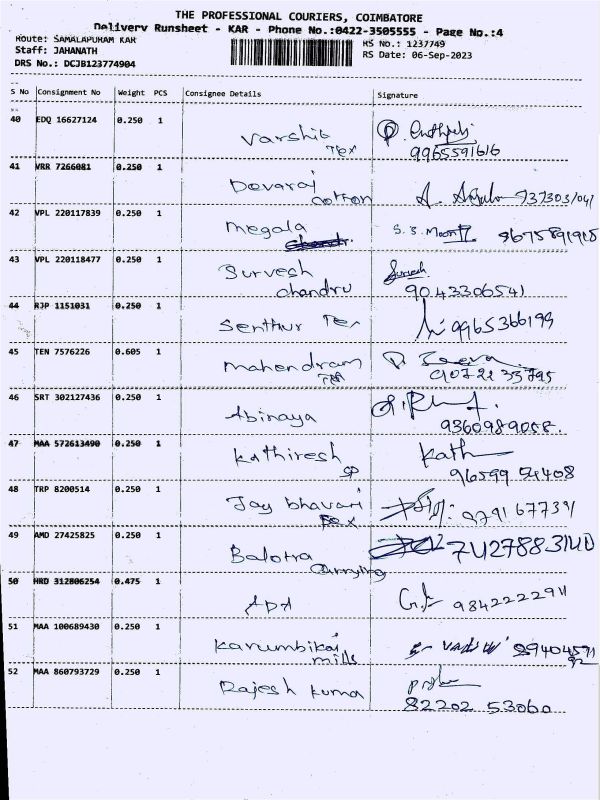 THE PROFESSIONAL COURIERS, COIMBATORE
Delivery Runsheet - KAR - Phone No.:0422-3505555 - Page No.:4
Route: SAMALAPURAM KAR
RS No.: 1237749
Staff: JAHANATH
RS Date: 06-Sep-2023
DRS No.: DCJB123774904
S No Consignment No Weight PCS Consignee Details Signature
40 EDQ 16627124 0.250 1
Varshib Tex
9965591616
41 VRR 7266081 0.250 1
Devaraj cotton
42 VPL 220117839 0.250 1
Megala
S.S. Moorti
43 VPL 220118477 0.250 1
Survesh chandru
Survesh
9043306541
44 RJP 1151031 0.250 1
Senthur Tex
9965366199
45 TEN 7576226 0.605 1
mahendram Tex
46 SRT 302127436 0.250 1
Abinaya
9360989058.
47 MAA 572613490 0.250 1
Kathiresh SP
Kath
96599 54408
48 TRP 8200514 0.250 1
Jay bhavari Tex
9791677391
49 AMD 27425825 0.250 1
Balotra Carrying
50 HRD 312806254 0.475 1
APA
9842222911
51 MAA 100689430 0.250 1
Karumbikai mills
52 MAA 860793729 0.250 1
Rajesh Kuma
82202 53060